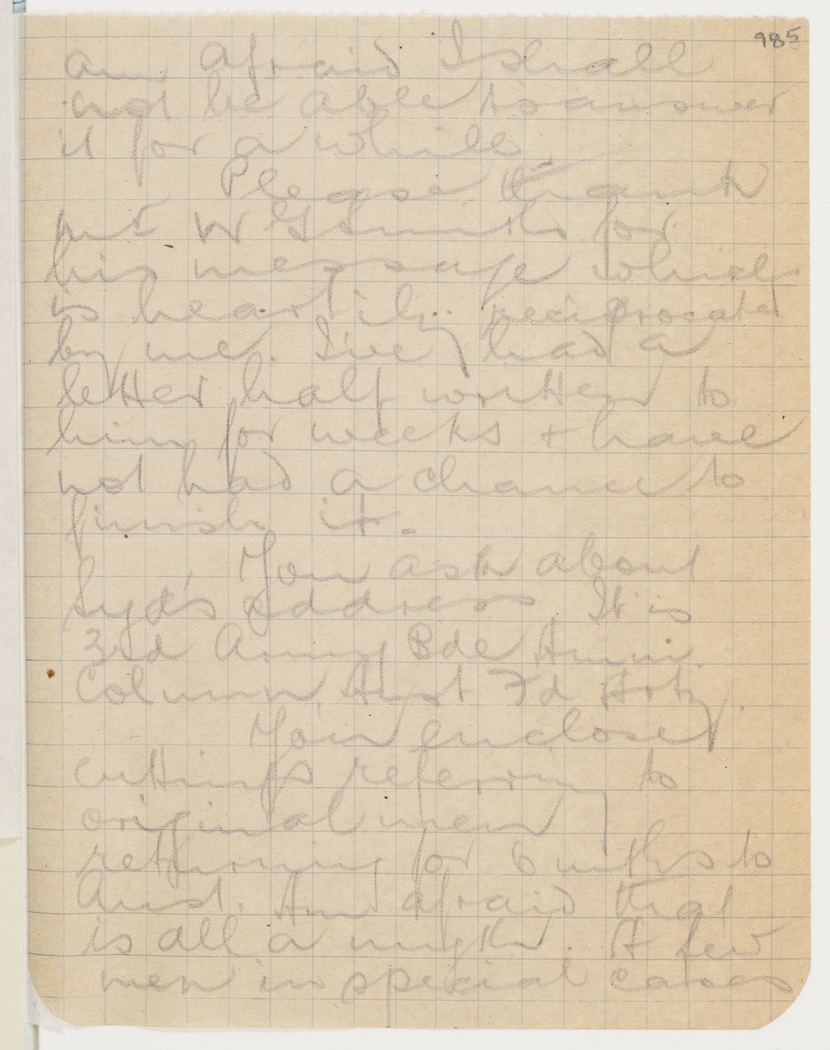 985
am afraid I shall
not be able to answer
it for a while.
Please thank
Mr W G Smith for
his message which
is heartily reciprocated
by me. I've had a
letter half written to
him for weeks & have
not had a chance to
finish it.
You ask about
Syd's address. It is
3rd Army Bde Amm.
Column, Aust Fd Arty.
You enclosed
cuttings referring to
original men
returning for 6 mths to
Aust. Am afraid that
is all a myth. A few
men in special cases